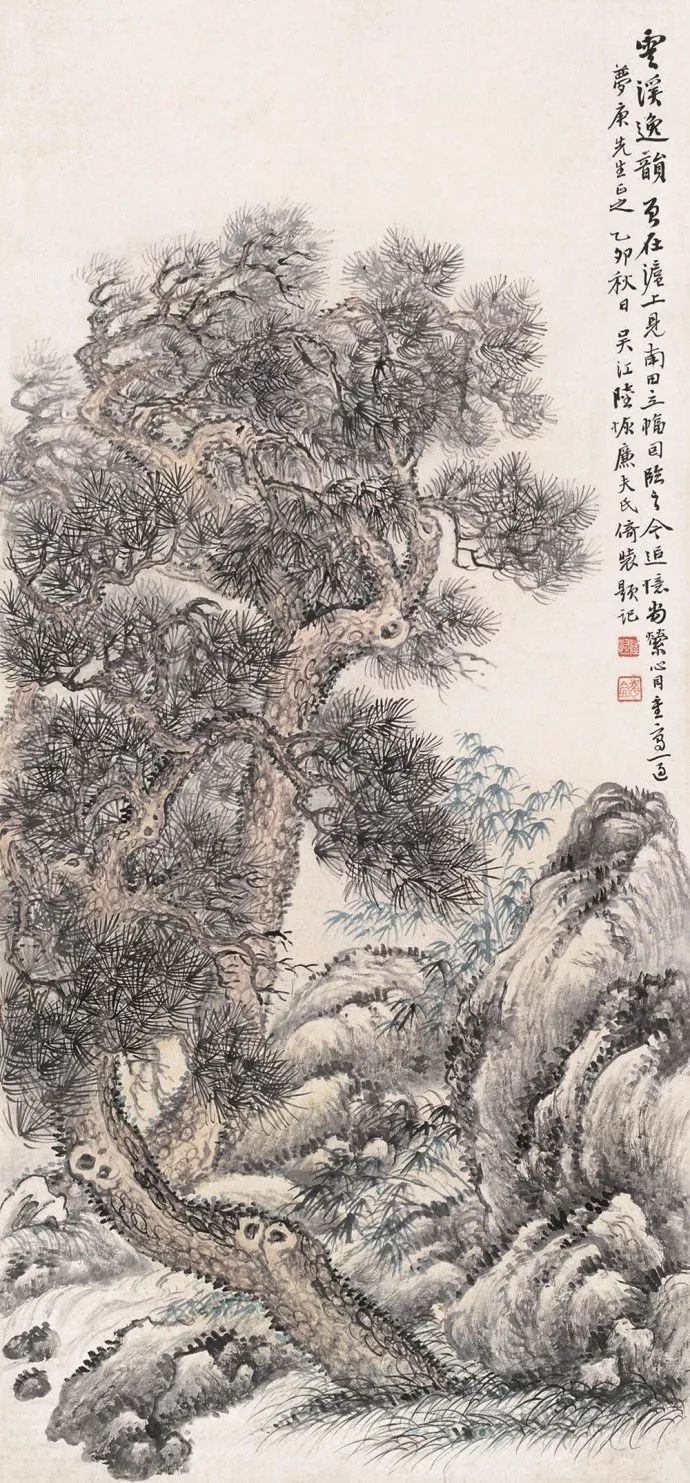 雲溪逸韻 曾在滬上見南田立幅因臨之今追憶尚縈心目重寫一過
夢庚先生正之 乙卯秋日 吳江陸恢廉夫氏倚裝題記